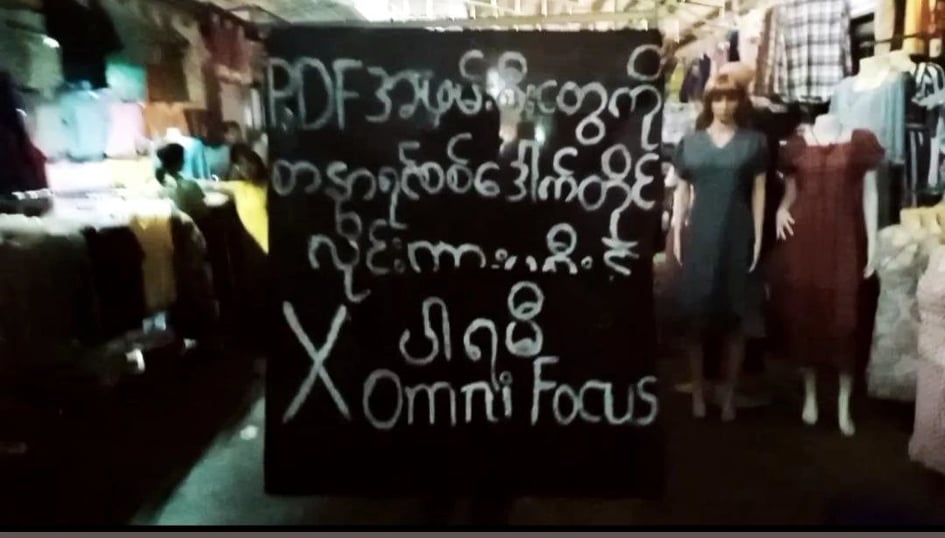 PDF အဖမ်းစီးတွေကို
တနာရယ်လစ်ဒေါက်တိုင်
လိုင်းကား
X ပါရမီ
Omni Focus